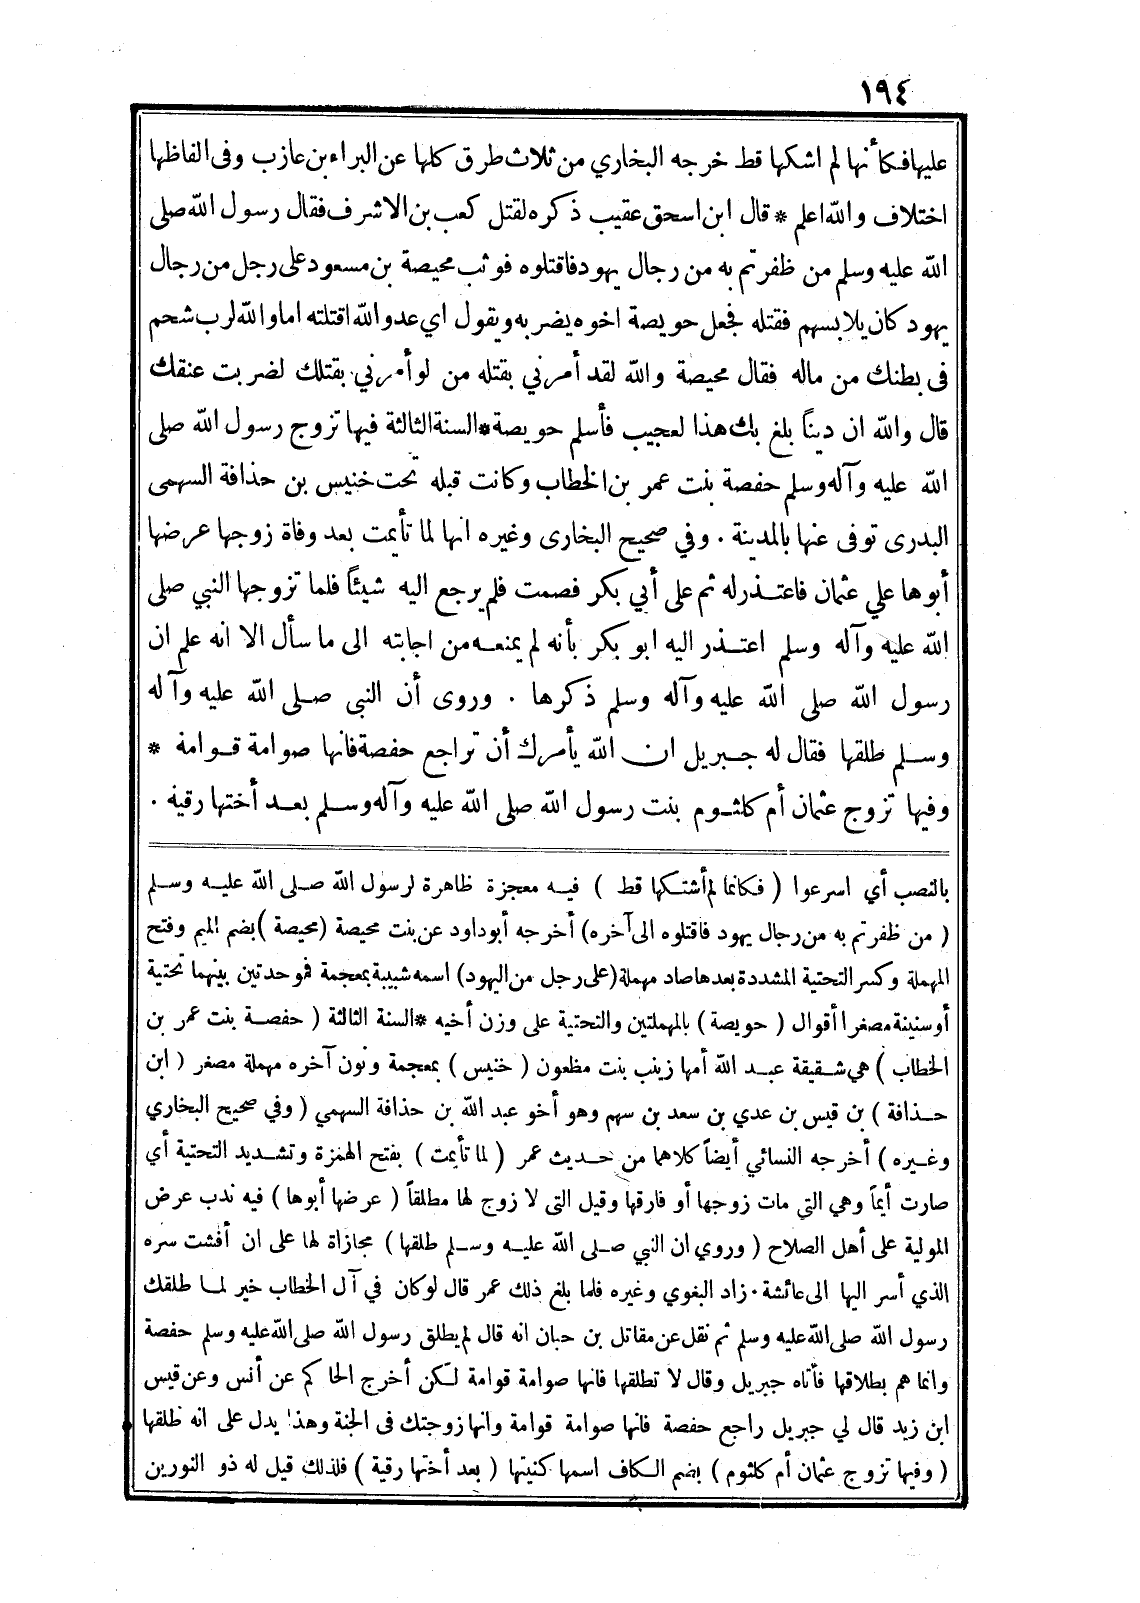 ١٩٤
عليها فكأنها لم اشكها قط خرجه البخاري من ثلاث طرق كلها عن البراء بن عازب وفى الفاظها
اختلاف والله اعلم * قال ابن اسحق عقيب ذكره لقتل كعب بن الاشرف فقال رسول الله صلى
الله عليه وسلم من ظفرتم به من رجال يهود فاقتلوه فوثب محيصة بن مسعود على رجل من رجال
يهود كان يلابسهم فقتله فجعل حويصة اخوه يضربه ويقول اي عدو الله اقتلته اما والله لرب شحم
فى بطنك من ماله فقال محيصة والله لقد أمرني بقتله من لو أمرني بقتلك لضربت عنقك
قال والله ان ديناً بلغ بك هذا لعجيب فأسلم حويصة * السنة الثالثة فيها تزوج رسول الله صلى
الله عليه وآله وسلم حفصة بنت عمر بن الخطاب وكانت قبله تحت خنيس بن حذافة السهمى
البدرى توفى عنها بالمدينة . وفي صحيح البخارى وغيره انها لما تأيمت بعد وفاة زوجها عرضها
أبوها علي عثمان فاعتذر له ثم على أبي بكر فصمت فلم يرجع اليه شيئاً فلما تزوجها النبي صلى
الله عليه وآله وسلم اعتذر اليه ابو بكر بأنه لم يمنعه من اجابته الى ما سأل الا انه علم ان
رسول الله صلى الله عليه وآله وسلم ذكرها . وروى أن النبى صلى الله عليه وآله
وسلم طلقها فقال له جبريل ان الله يأمرك أن تراجع حفصة فانها صوامة قوامة *
وفيها تزوج عثمان أم كلثوم بنت رسول الله صلى الله عليه وآله وسلم بعد أختها رقية .
بالنصب أي اسرعوا ( فكانما لم أشتكها قط ) فيه معجزة ظاهرة لرسول الله صلى الله عليه وسلم
( من ظفرتم به من رجال يهود فاقتلوه الى آخره) أخرجه أبو داود عن بنت محيصة (محيصة ) بضم الميم وفتح
المهملة وكسر التحتية المشددة بعدها صاد مهملة (على رجل من اليهود) اسمه شبيبة بمعجمة فموحدتين بينهما تحتية
أو سنينة مصغرا أقوال ( حويصة ) بالمهملتين والتحتية على وزن أخيه * السنة الثالثة ( حفصة بنت عمر بن
الخطاب ) هي شقيقة عبد الله أمها زينب بنت مظعون ( خنيس ) بمعجمة ونون آخره مهملة مصغر ( ابن
حذافة ) بن قيس بن عدي بن سعد بن سهم وهو أخو عبد الله بن حذافة السهمي ( وفي صحيح البخاري
وغيره ) أخرجه النسائي أيضاً كلاهما من حديث عمر ( لما تأيمت ) بفتح الهمزة وتشديد التحتية أي
صارت أيماً وهي التي مات زوجها أو فارقها وقيل التى لا زوج لها مطلقاً ( عرضها أبوها ) فيه ندب عرض
المولية على أهل الصلاح ( وروي ان النبي صلى الله عليه وسلم طلقها ) مجازاة لها على ان أفشت سره
الذي أسر اليها الى عائشة . زاد البغوي وغيره فلما بلغ ذلك عمر قال لو كان في آل الخطاب خير لما طلقك
رسول الله صلى الله عليه وسلم ثم نقل عن مقاتل بن حبان انه قال لم يطلق رسول الله صلى الله عليه وسلم حفصة
وانما هم بطلاقها فأتاه جبريل وقال لا تطلقها فانها صوامة قوامة لكن أخرج الحاكم عن أنس وعن قيس
ابن زيد قال لي جبريل راجع حفصة فانها صوامة قوامة وانها زوجتك فى الجنة وهذا يدل على انه طلقها
( وفيها تزوج عثمان أم كلثوم ) بضم الكاف اسمها كنيتها ( بعد أختها رقية ) فلذلك قيل له ذو النورين